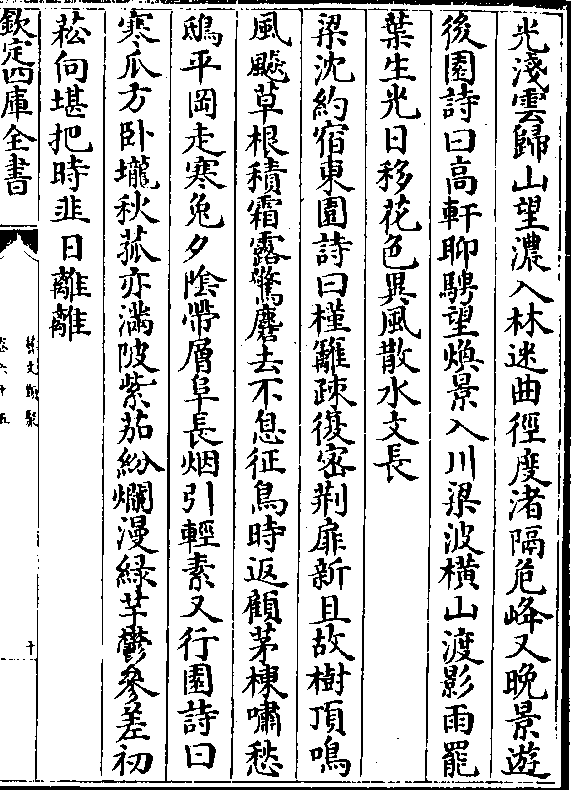 光淺雲歸山望濃入林迷曲徑度渚隔危峰又晚景遊
後園詩曰高軒聊騁望煥景入川梁波横山渡影雨罷
葉生光日移花色異風散水文長
梁沈約宿東園詩曰槿籬疎復密荆扉新且故樹頂鳴
風飈草根積霜露驚麏去不息征鳥時返顧茅棟嘯愁
鴟平岡走寒兔夕隂帶層阜長烟引輕素又行園詩曰
寒瓜方卧壠秋菰亦滿陂紫茄紛爛漫緑芋鬱參差初
菘向堪把時韭日離離
欽定四庫全書
藝文類聚
卷六十五
十